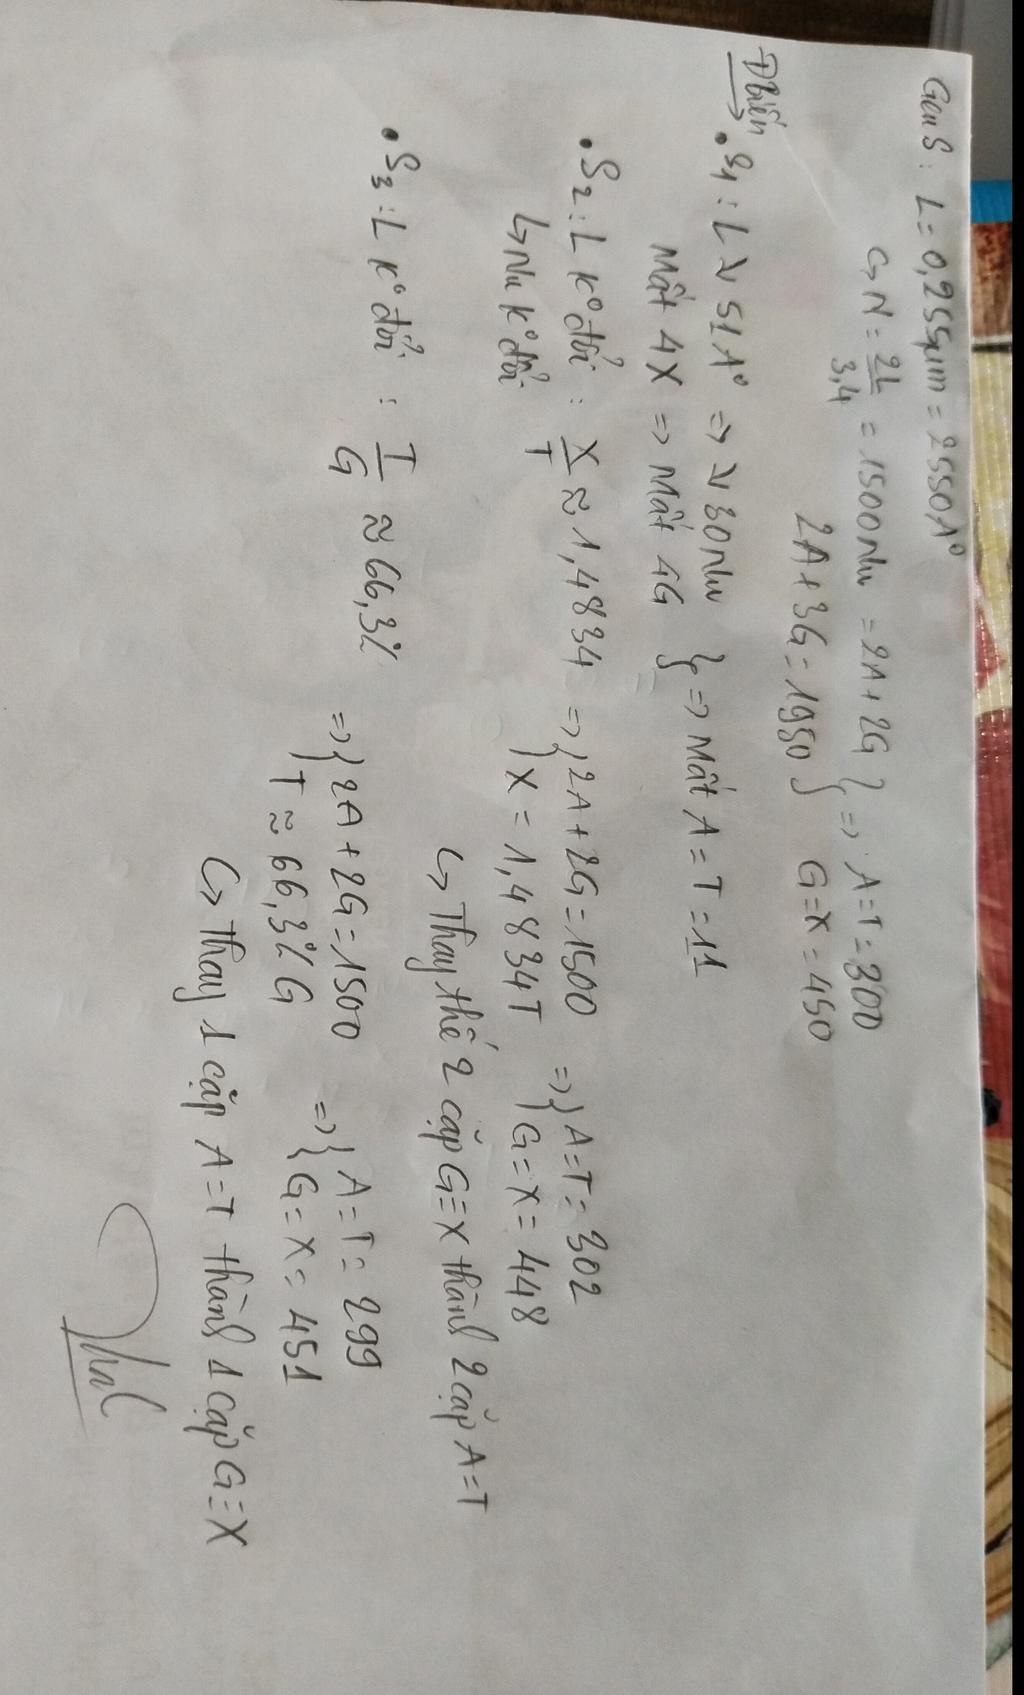 Gen S : L = 0,255µm = 2550A°
↳ N = 2L/3,4 = 1500nu = 2A + 2G } => A=T = 300
2A + 3G = 1950 } G=X = 450
Đbiến
• S1 : L ↘ 51A° => ↘ 30nu } => Mất A = T = 11
Mất 4X => Mất 4G
• S2 : L k° đổi : X/T ≈ 1,4834 => { 2A + 2G = 1500 => { A=T = 302
↳ Nu k° đổi X = 1,4834T G=X = 448
↳ Thay thế 2 cặp G≡X thành 2 cặp A=T
• S3 : L k° đổi : T/G ≈ 66,3%
=> { 2A + 2G = 1500 => { A = T = 299
T ≈ 66,3% G G = X = 451
↳ Thay 1 cặp A=T thành 1 cặp G≡X